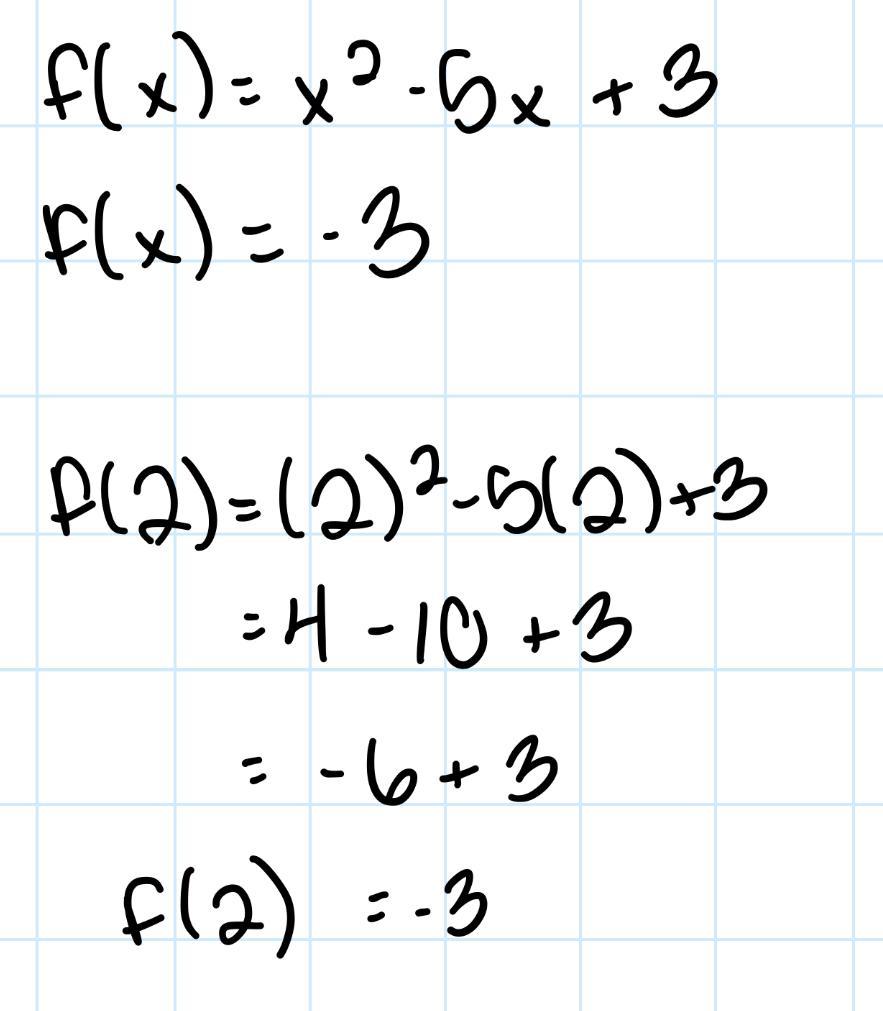 f(x) = x² - 5x + 3
f(x) = -3
f(2) = (2)² - 5(2) + 3
= 4 - 10 + 3
= -6 + 3
f(2) = -3